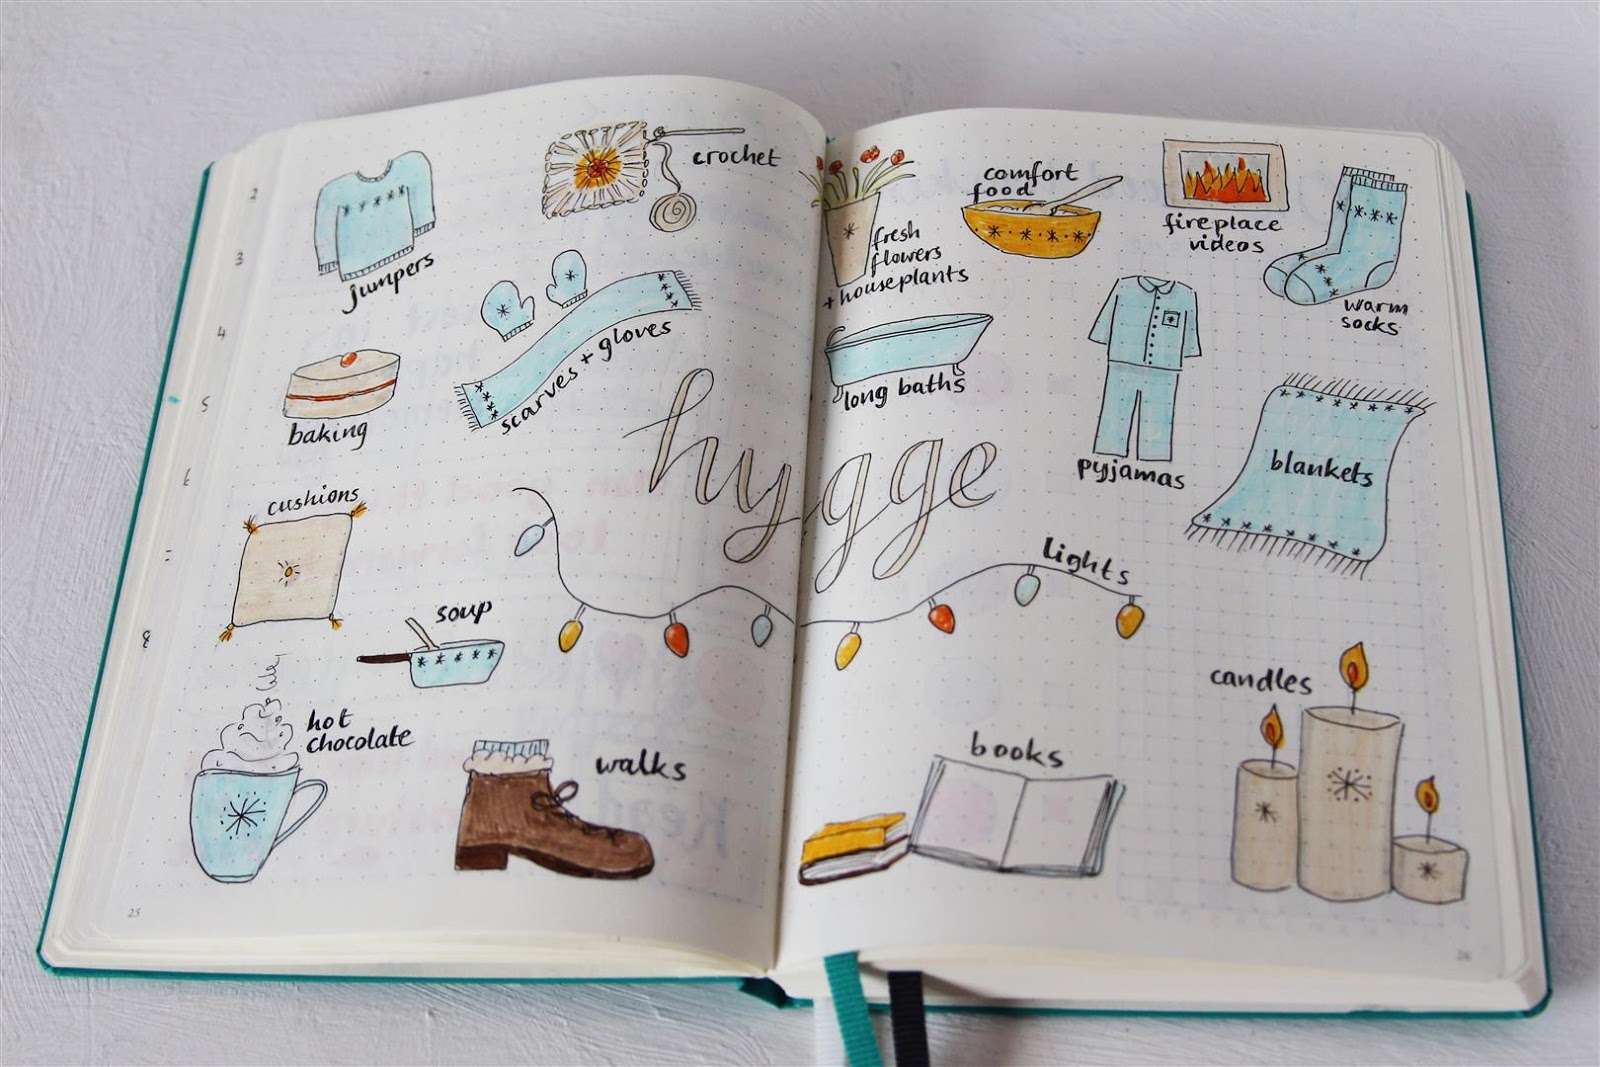 jumpers
crochet
scarves + gloves
baking
cushions
soup
hot
chocolate
walks
hygge
fresh
flowers
+ houseplants
comfort
food
fireplace
videos
warm
socks
long baths
pyjamas
blankets
lights
candles
books
2
3
4
5
6
7
8
25
26